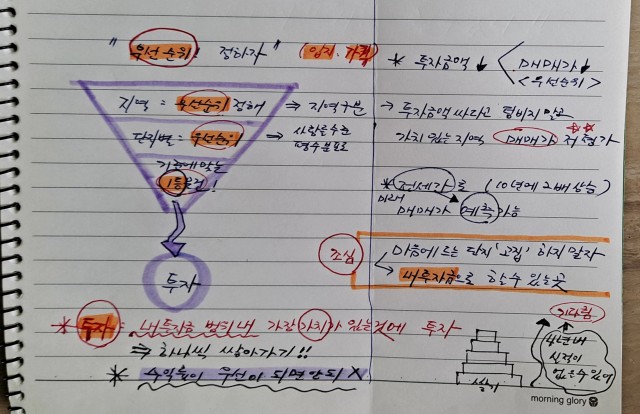 " 우선순위! 정하자 " (입지. 가치)
지역 = 우선순위 정해 ⇒ 지역구분
단지별 = 우선순위 ⇒ 사람들 수준
평수 분포도
기준에 맞는
1등 물건!
투자
* 투자금액 ↓ < 매매가
<우선순위>
→ 투자금액 싸다고 덤비지 말고
가치 있는 지역 매매가 저평가
* 전세가로 (10년에 2배 상승)
미래
매매가 예측가능
조심
마음에 드는 단지 '고집' 하지 말자
내 투자금으로 할 수 있는 곳
* 투자 : 내 투자금 범위 내 가장 가치가 있는 것에 투자
⇒ 하나씩 쌓아가기!!
* 수익률이 우선이 되면 안 되 X
기다림
4년 내
실적이
없을 수 있어
morning glory